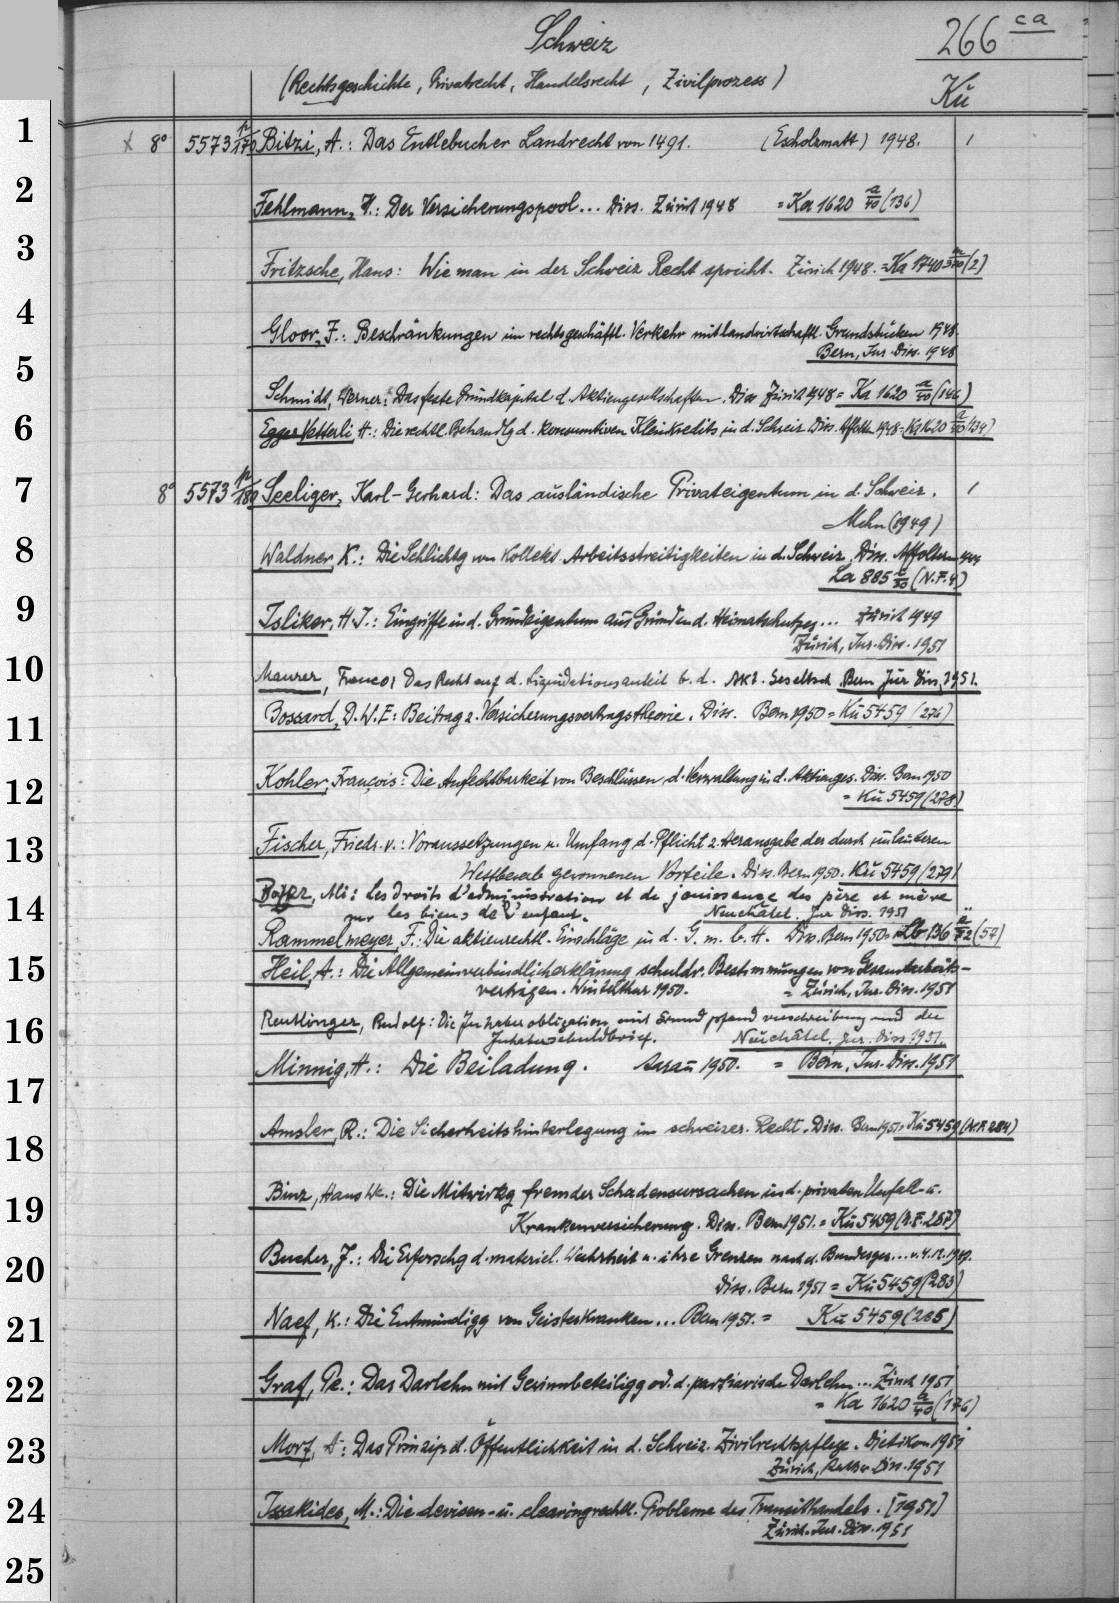 Schweiz
266 ca
(Rechtsgeschichte, Privatrecht, Handelsrecht, Zivilprozess)
Kü
1
x 8° 5573 p/170 Bitzi, A.: Das Entlebucher Landrecht von 1491. (Escholzmatt) 1948. 1
2
Fehlmann, H.: Der Versicherungspool... Diss. Zürich 1948 = Ka 1620 a/40 (136)
3
Fritzsche, Hans: Wie man in der Schweiz Recht spricht. Zürich 1948. = Ka 1740 (2)
4
Gloor, F.: Beschränkungen im rechtsgeschäftl. Verkehr mit landwirtschaftl. Grundstücken 1948.
Bern, Jur. Diss. 1948
5
Schmidt, Werner: Das feste Grundkapital d. Aktiengesellschaften. Diss Zürich 1948 = Ka 1620 a/40 (146)
6
Egger Vetterli H.: Die rechtl. Behandlg d. konsumtiven Kleinkredits in d. Schweiz Diss. 1948 = Ka 1620 a/40 (134)
7
8° 5573 p/180 Seeliger, Karl-Gerhard: Das ausländische Privateigentum in d. Schweiz. 1
Mchn (1949)
8
Waldner, K.: Die Schlichtg von Kollekt. Arbeitsstreitigkeiten in d. Schweiz. Diss. Affoltern
La 885 c/30 (N.F.4)
9
Isliker, H.J.: Eingriffe in d. Grundeigentum aus Gründen d. Heimatschutzes... Zürich 1949
Zürich, Jur. Diss. 1951
10
Maurer, Franco: Das Recht auf d. Liquidationsanteil b. d. Akt. Gesellsch. Bern Jur Diss. 1951.
11
Bossard, D.W.E: Beitrag z. Versicherungsvertragstheorie. Diss. Bern 1950 = Kü 5459 (276)
12
Kohler, François: Die Anfechtbarkeit von Beschlüssen d. Verwaltung in d. Aktienges. Diss. Bern 1950
= Kü 5459 (278)
13
Fischer, Friedr. v.: Voraussetzungen u. Umfang d. Pflicht z. Herausgabe der durch unlauteren
Wettbewerb gewonnenen Vorteile. Diss. Bern 1950. Kü 5459 (279)
14
Ali: Les droits d'administration et de jouissance des père et mère
sur les biens de l'enfant. Neuchâtel. Jur Diss. 1951
Rammelmeyer, F.: Die aktienrechtl. Einschläge in d. G.m.b.H. Diss. Bern 1950 = Lb 136 (57)
15
Heil, A.: Die Allgemeinverbindlicherklärung schuldr. Bestimmungen von Gesamtarbeits-
verträgen. Winterthur 1950. = Zürich, Jur. Diss. 1951
16
Reutlinger, Rudolf: Die Inhaberobligation mit Grundpfandverschreibung und der
Inhaberschuldbrief. Neuchâtel. Jur. Diss. 1951.
Minnig, H.: Die Beiladung. Aarau 1950. = Bern, Jur. Diss. 1951
17
18
Amsler, R.: Die Sicherheitshinterlegung im schweizer. Recht. Diss. Bern 1951. Kü 5459 (N.F. 284)
19
Binz, Hans Wr.: Die Mitwirkg fremder Schadensursachen in d. privaten Unfall- u.
Krankenversicherung. Diss. Bern 1951. = Kü 5459 (N.F. 287)
20
Bucher, J.: Die Erforschg d. materiel. Wahrheit u. ihre Grenzen nach d. Bundesges... v. 4.12.1947.
Diss. Bern 1951 = Kü 5459 (283)
21
Naef, K.: Die Entmündigg von Geisteskranken... Bern 1951. = Kü 5459 (285)
22
Graf, Pe.: Das Darlehn mit Gewinnbeteiligg od. d. partiarische Darlehn... Zürich 1951
= Ka 1620 a/40 (176)
23
Morf, A: Das Prinzip d. Öffentlichkeit in d. Schweiz. Zivilrechtspflege. Dietikon 1951
Zürich, Diss. 1951
24
Issakides, M.: Die devisen- u. clearingrechtl. Probleme des Transithandels. [1951]
Zürich. Jur. Diss. 1951
25